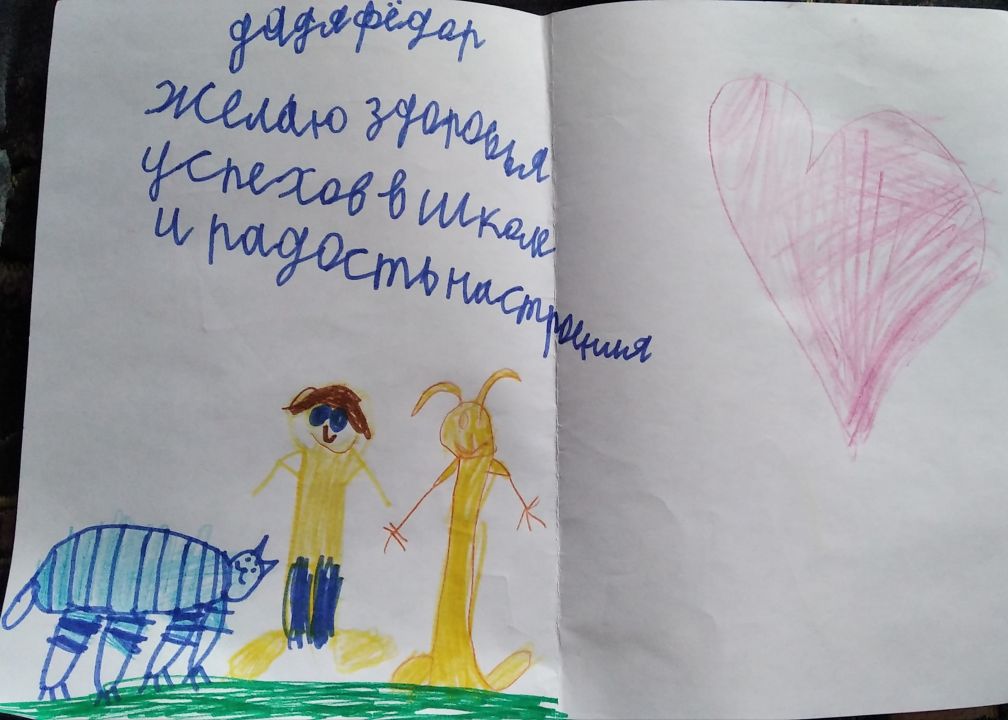 дядя фёдар
желаю здоровья
успехов в школе
и радость настроения